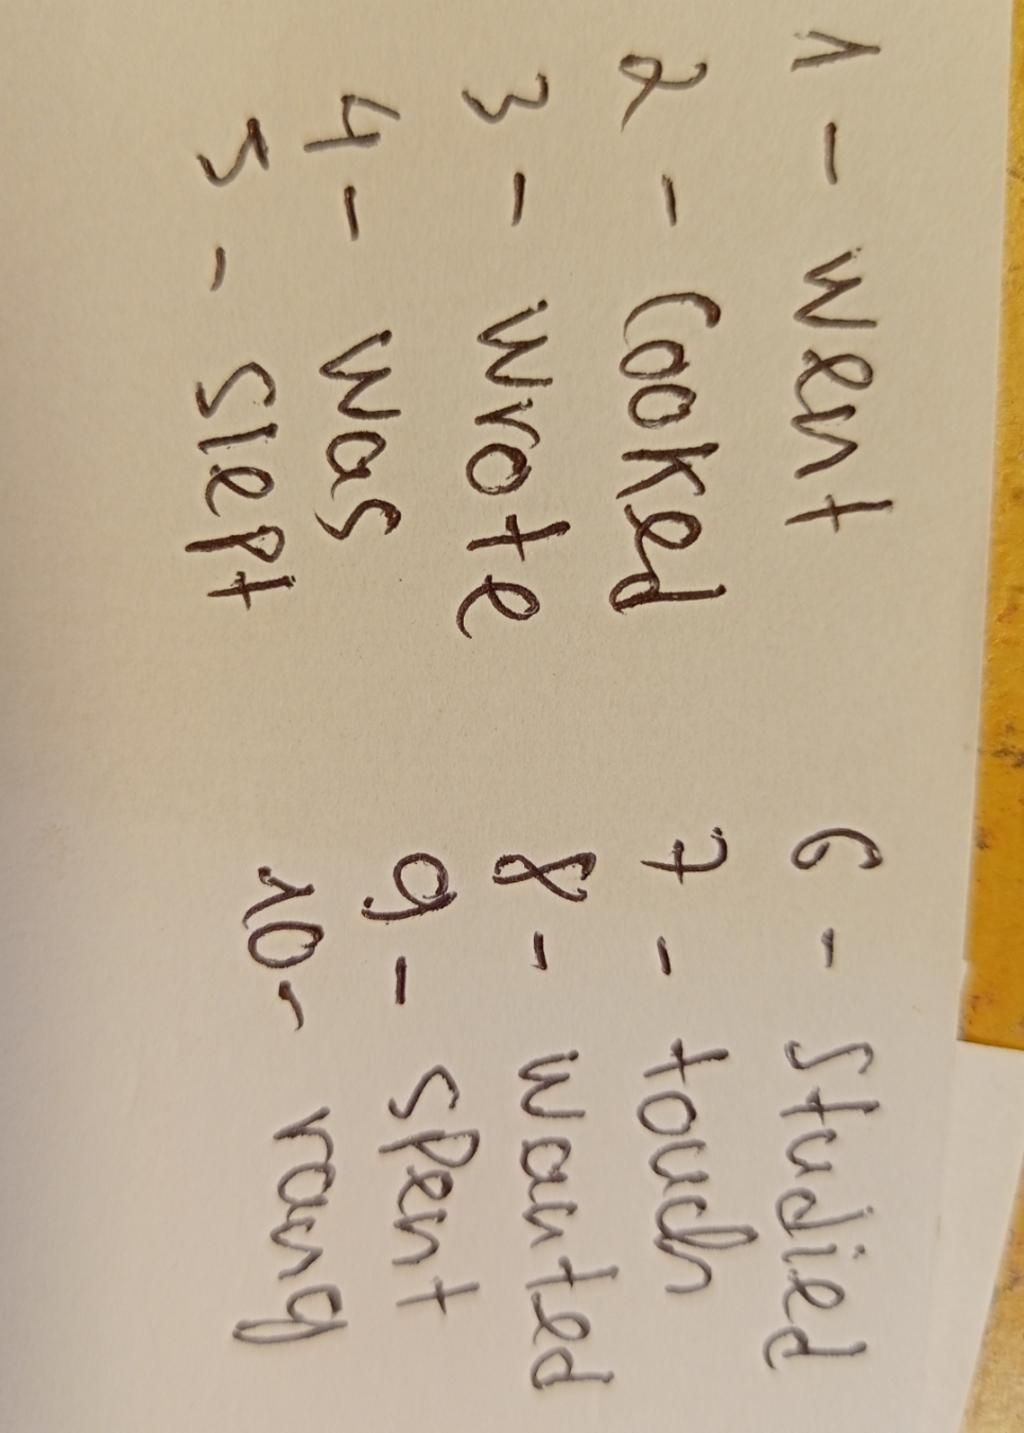 1 - went
2 - Cooked
3 - wrote
4 - was
5 - slept
6 - studied
7 - touch
8 - wanted
9 - spent
10 - rang